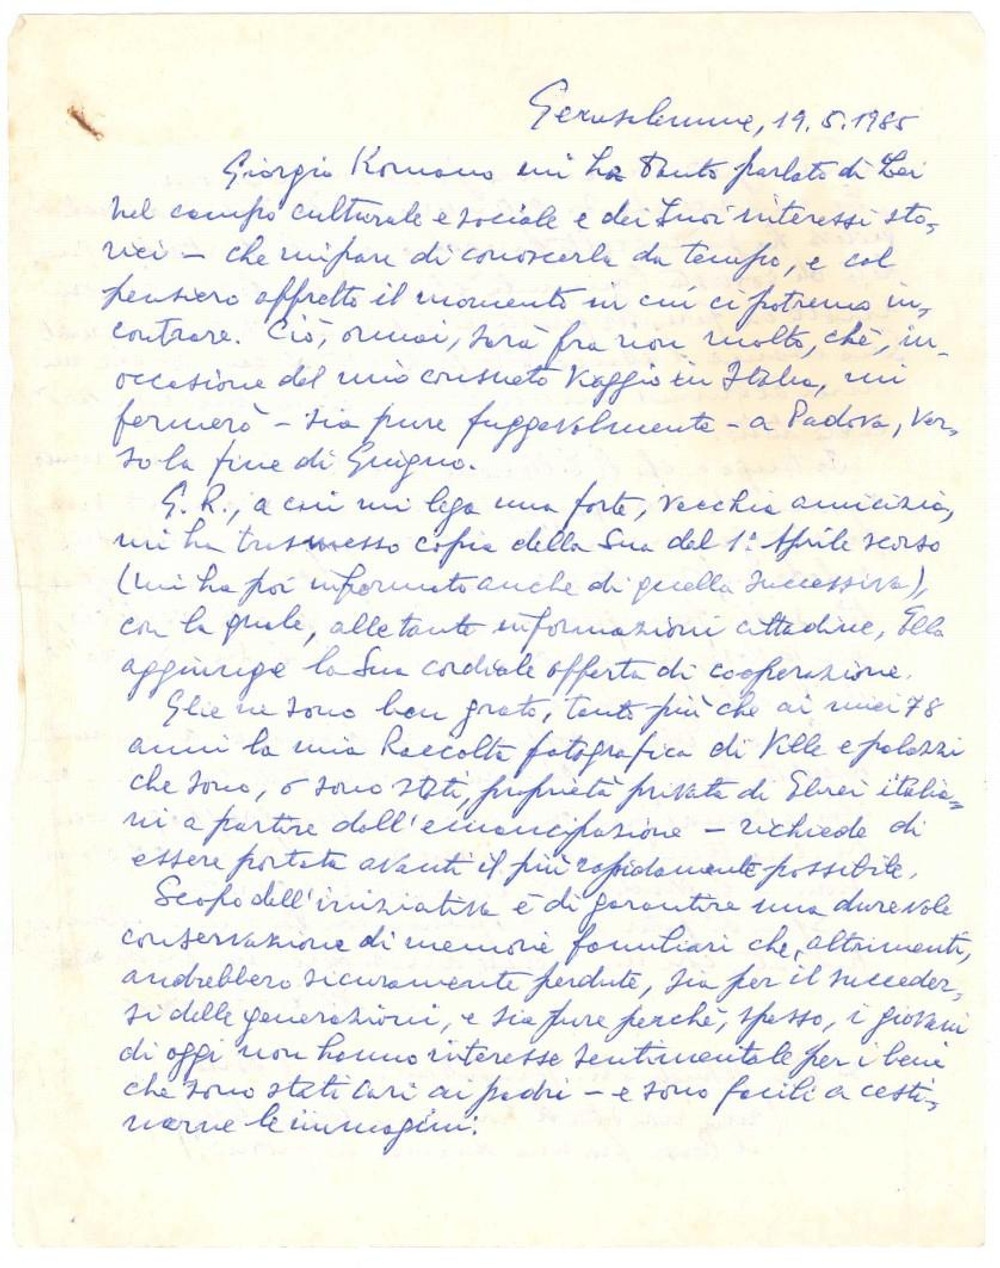 Gerusalemme, 19.5.1985
Giorgio Romano mi ha tanto parlato di Lei
nel campo culturale e sociale e dei Suoi interessi sto=
rici – che mi pare di conoscerla da tempo, e col
pensiero affretto il momento in cui ci potremo in=
contrare. Ciò, ormai, sarà fra non molto, chè, in-
occasione del mio consueto viaggio in Italia, mi
fermerò – sia pure fuggevolmente – a Padova, ver=
so la fine di Giugno.
G. R., a cui mi lega una forte, vecchia amicizia,
mi ha trasmesso copia della Sua del 1° Aprile scorso
(mi ha poi informato anche di quella successiva),
con la quale, alle tante informazioni cittadine, Ella
aggiunge la Sua cordiale offerta di cooperazione.
Glie ne sono ben grato, tanto più che ai miei 78
anni la mia Raccolta fotografica di Ville e palazzi
che sono, o sono stati, proprietà privata di Ebrei italia=
ni a partire dall'emancipazione – richiede di
essere portata avanti il più rapidamente possibile.
Scopo dell'iniziativa è di garantire una durevole
conservazione di memorie familiari che, altrimenti,
andrebbero sicuramente perdute, sia per il succeder=
si delle generazioni, e sia pure perchè, spesso, i giovani
di oggi non hanno interesse sentimentale per i beni
che sono stati cari ai padri – e sono facili a cesti=
narne le immagini.